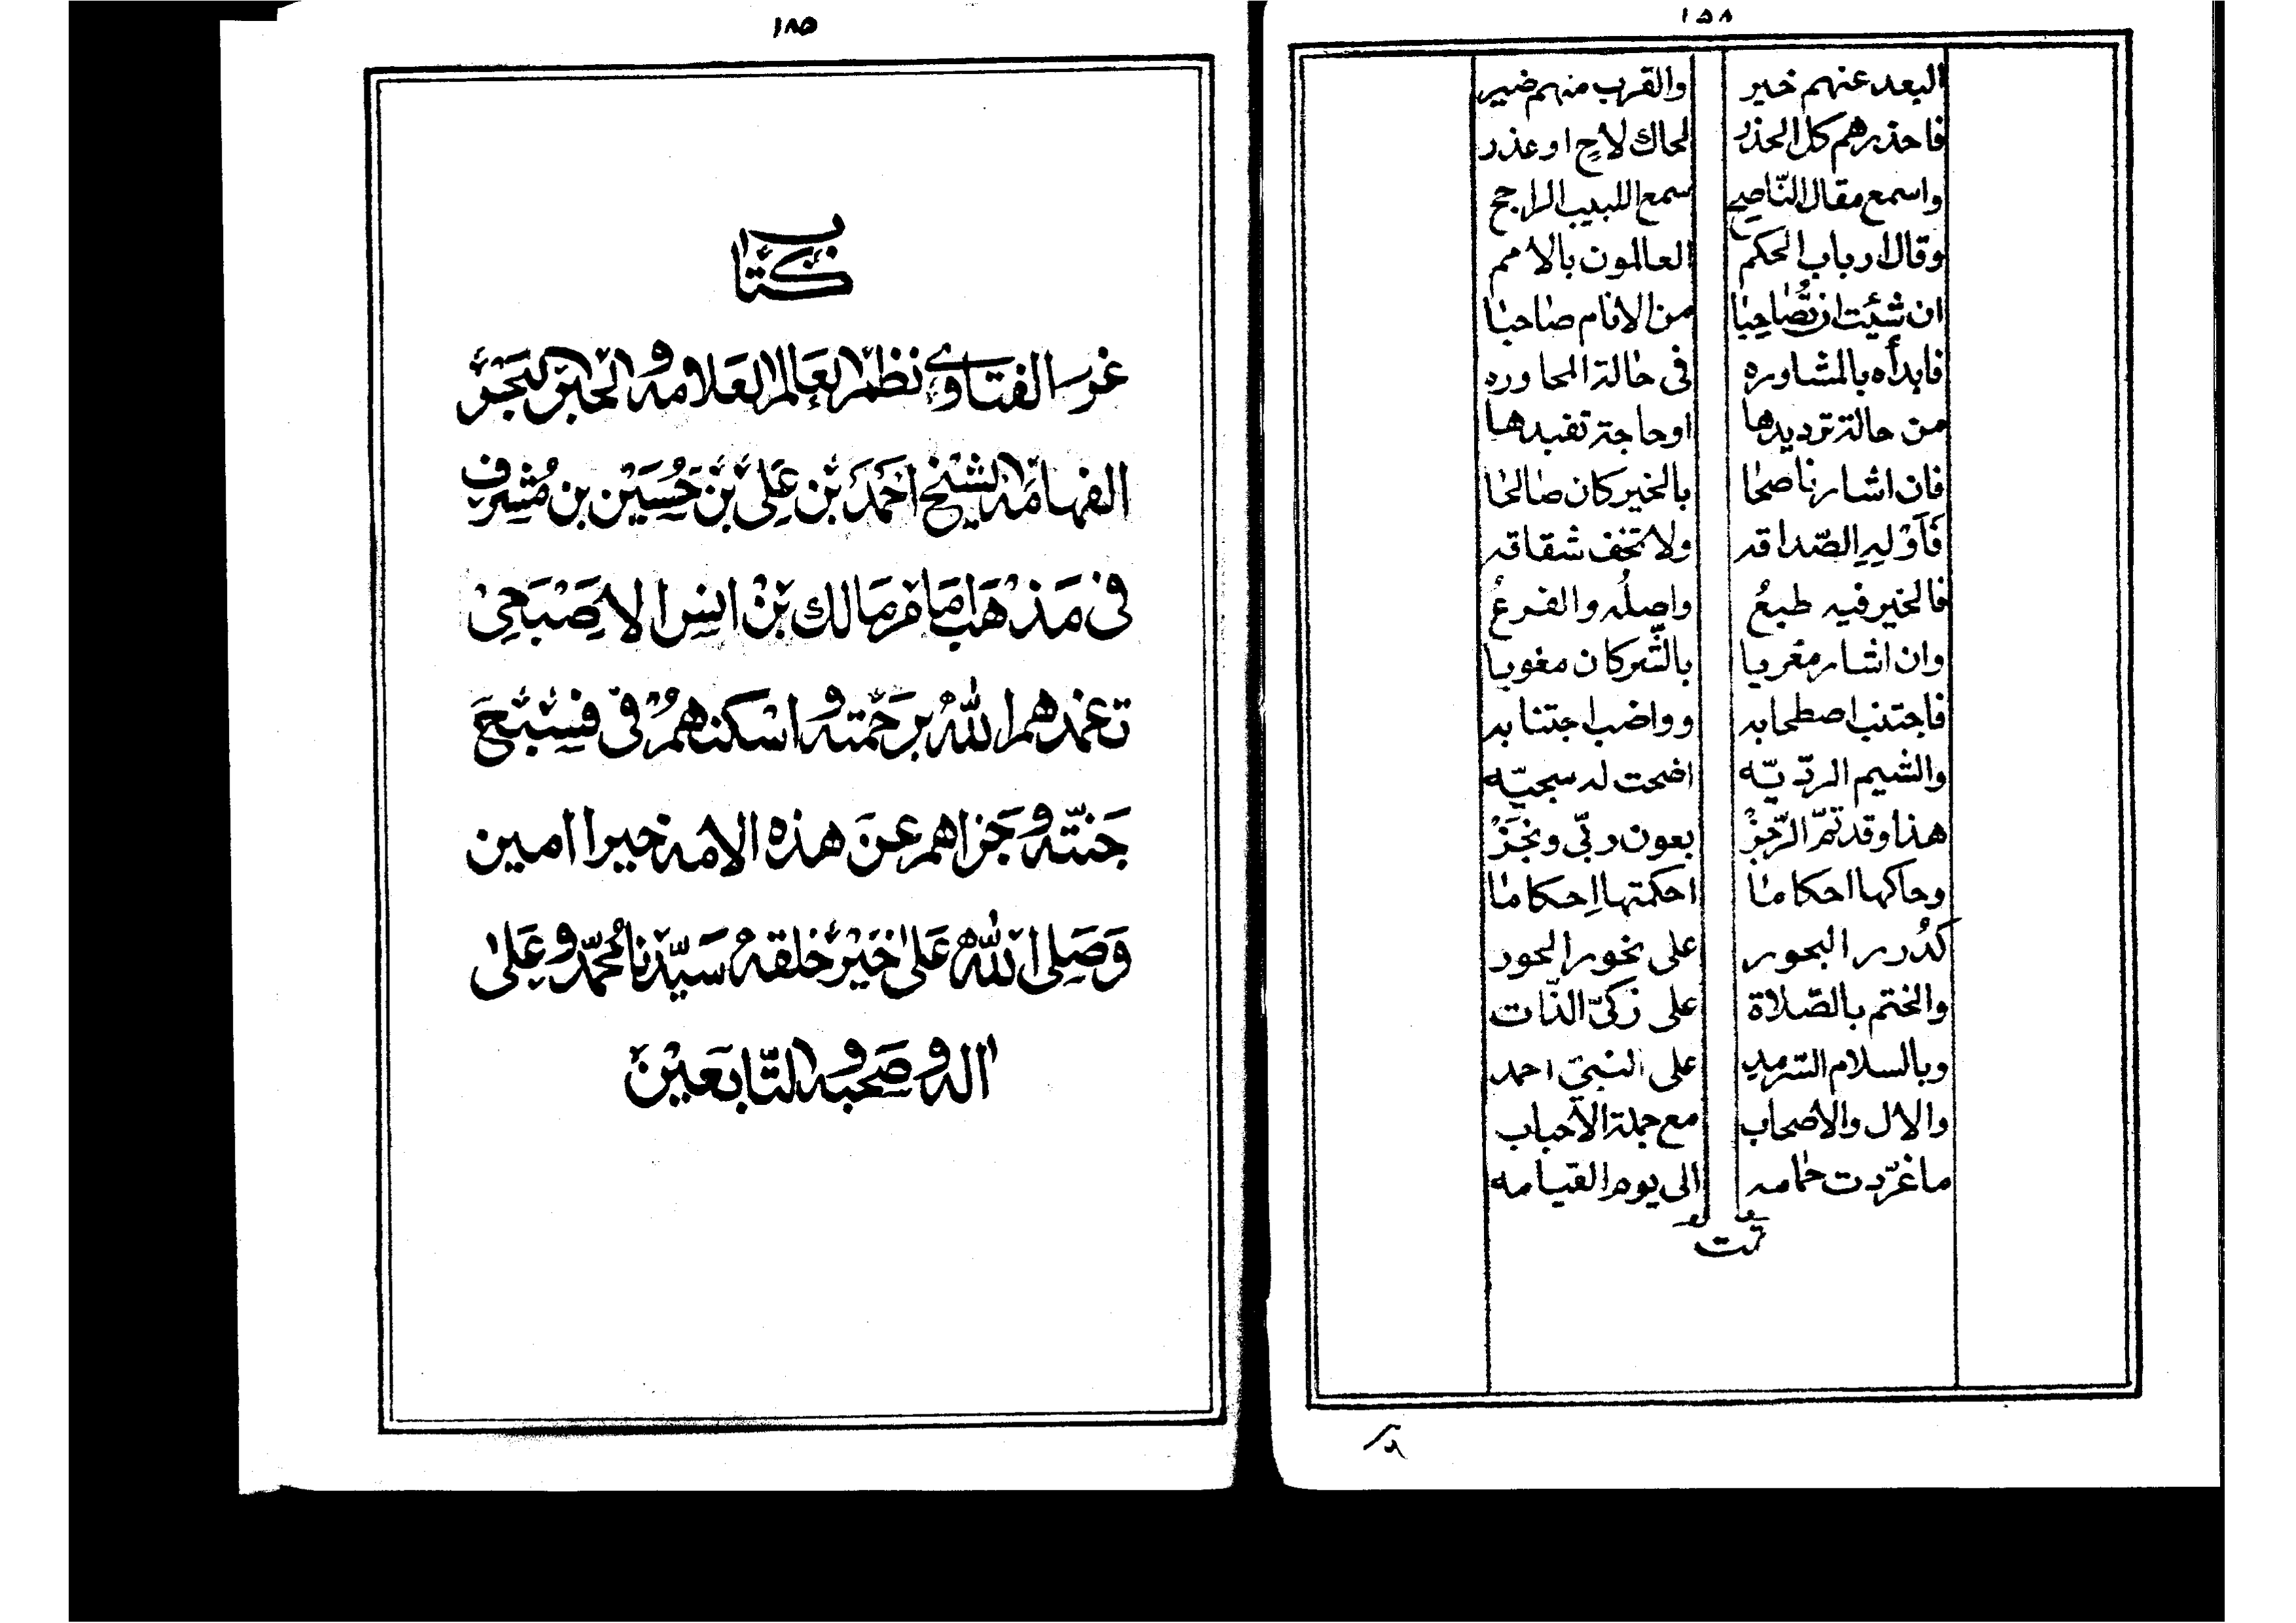 ١٥٨
البعد عنهم خير والقرب منهم ضير
فاحذرهم كل الحذر لحاك لاحٍ او عذر
واسمع مقال النّاصح سمع اللبيب الراجح
وقال ارباب الحكم العالمون بالامم
ان شئت ان تُصاحِبا من الانام صاحبا
فابدأه بالمشاوره فى حالة المحاوره
من حالة تريدها او حاجة تفيدها
فان اشار ناصحا بالخير كان صالحا
فَأَوْلِهِ الصّداقه ولا تخف شقاقه
فالخير فيه طبعُ واصلُه والفرعُ
وان اشار مغريا بالشّر كان مغويا
فاجتنب اصطحابه وواضب اجتنابه
والشيم الرديّه اضحت له سجيّه
هذا وقد تمّ الرّجزْ بعون ربّى ونجَزْ
وحاكها احكاما احكمتها اِحكاما
كدُرر البحور على نحور الحور
والختم بالصّلاة على زكىّ الذّات
وبالسلام السّرمدِ على النبىّ احمد
والال والاصحاب مع جملة الاحباب
ما غرّدت حمامه الى يوم القيامه
تمت
١٨٥
كتاب
غرر الفتاوى نظم العالم العلامه والحبر البحر
الفهامة الشيخ احمد بن على بن حسين بن مشرف
فى مذهب امام مالك بن انس الاصبحى
تغمدهم الله برحمته واسكنهم فى فسيح
جنّته وجزاهم عن هذه الامه خيرا امين
وصلى الله على خير خلقه سيّدنا محمّد وعلى
اله وصحبه والتّابعين